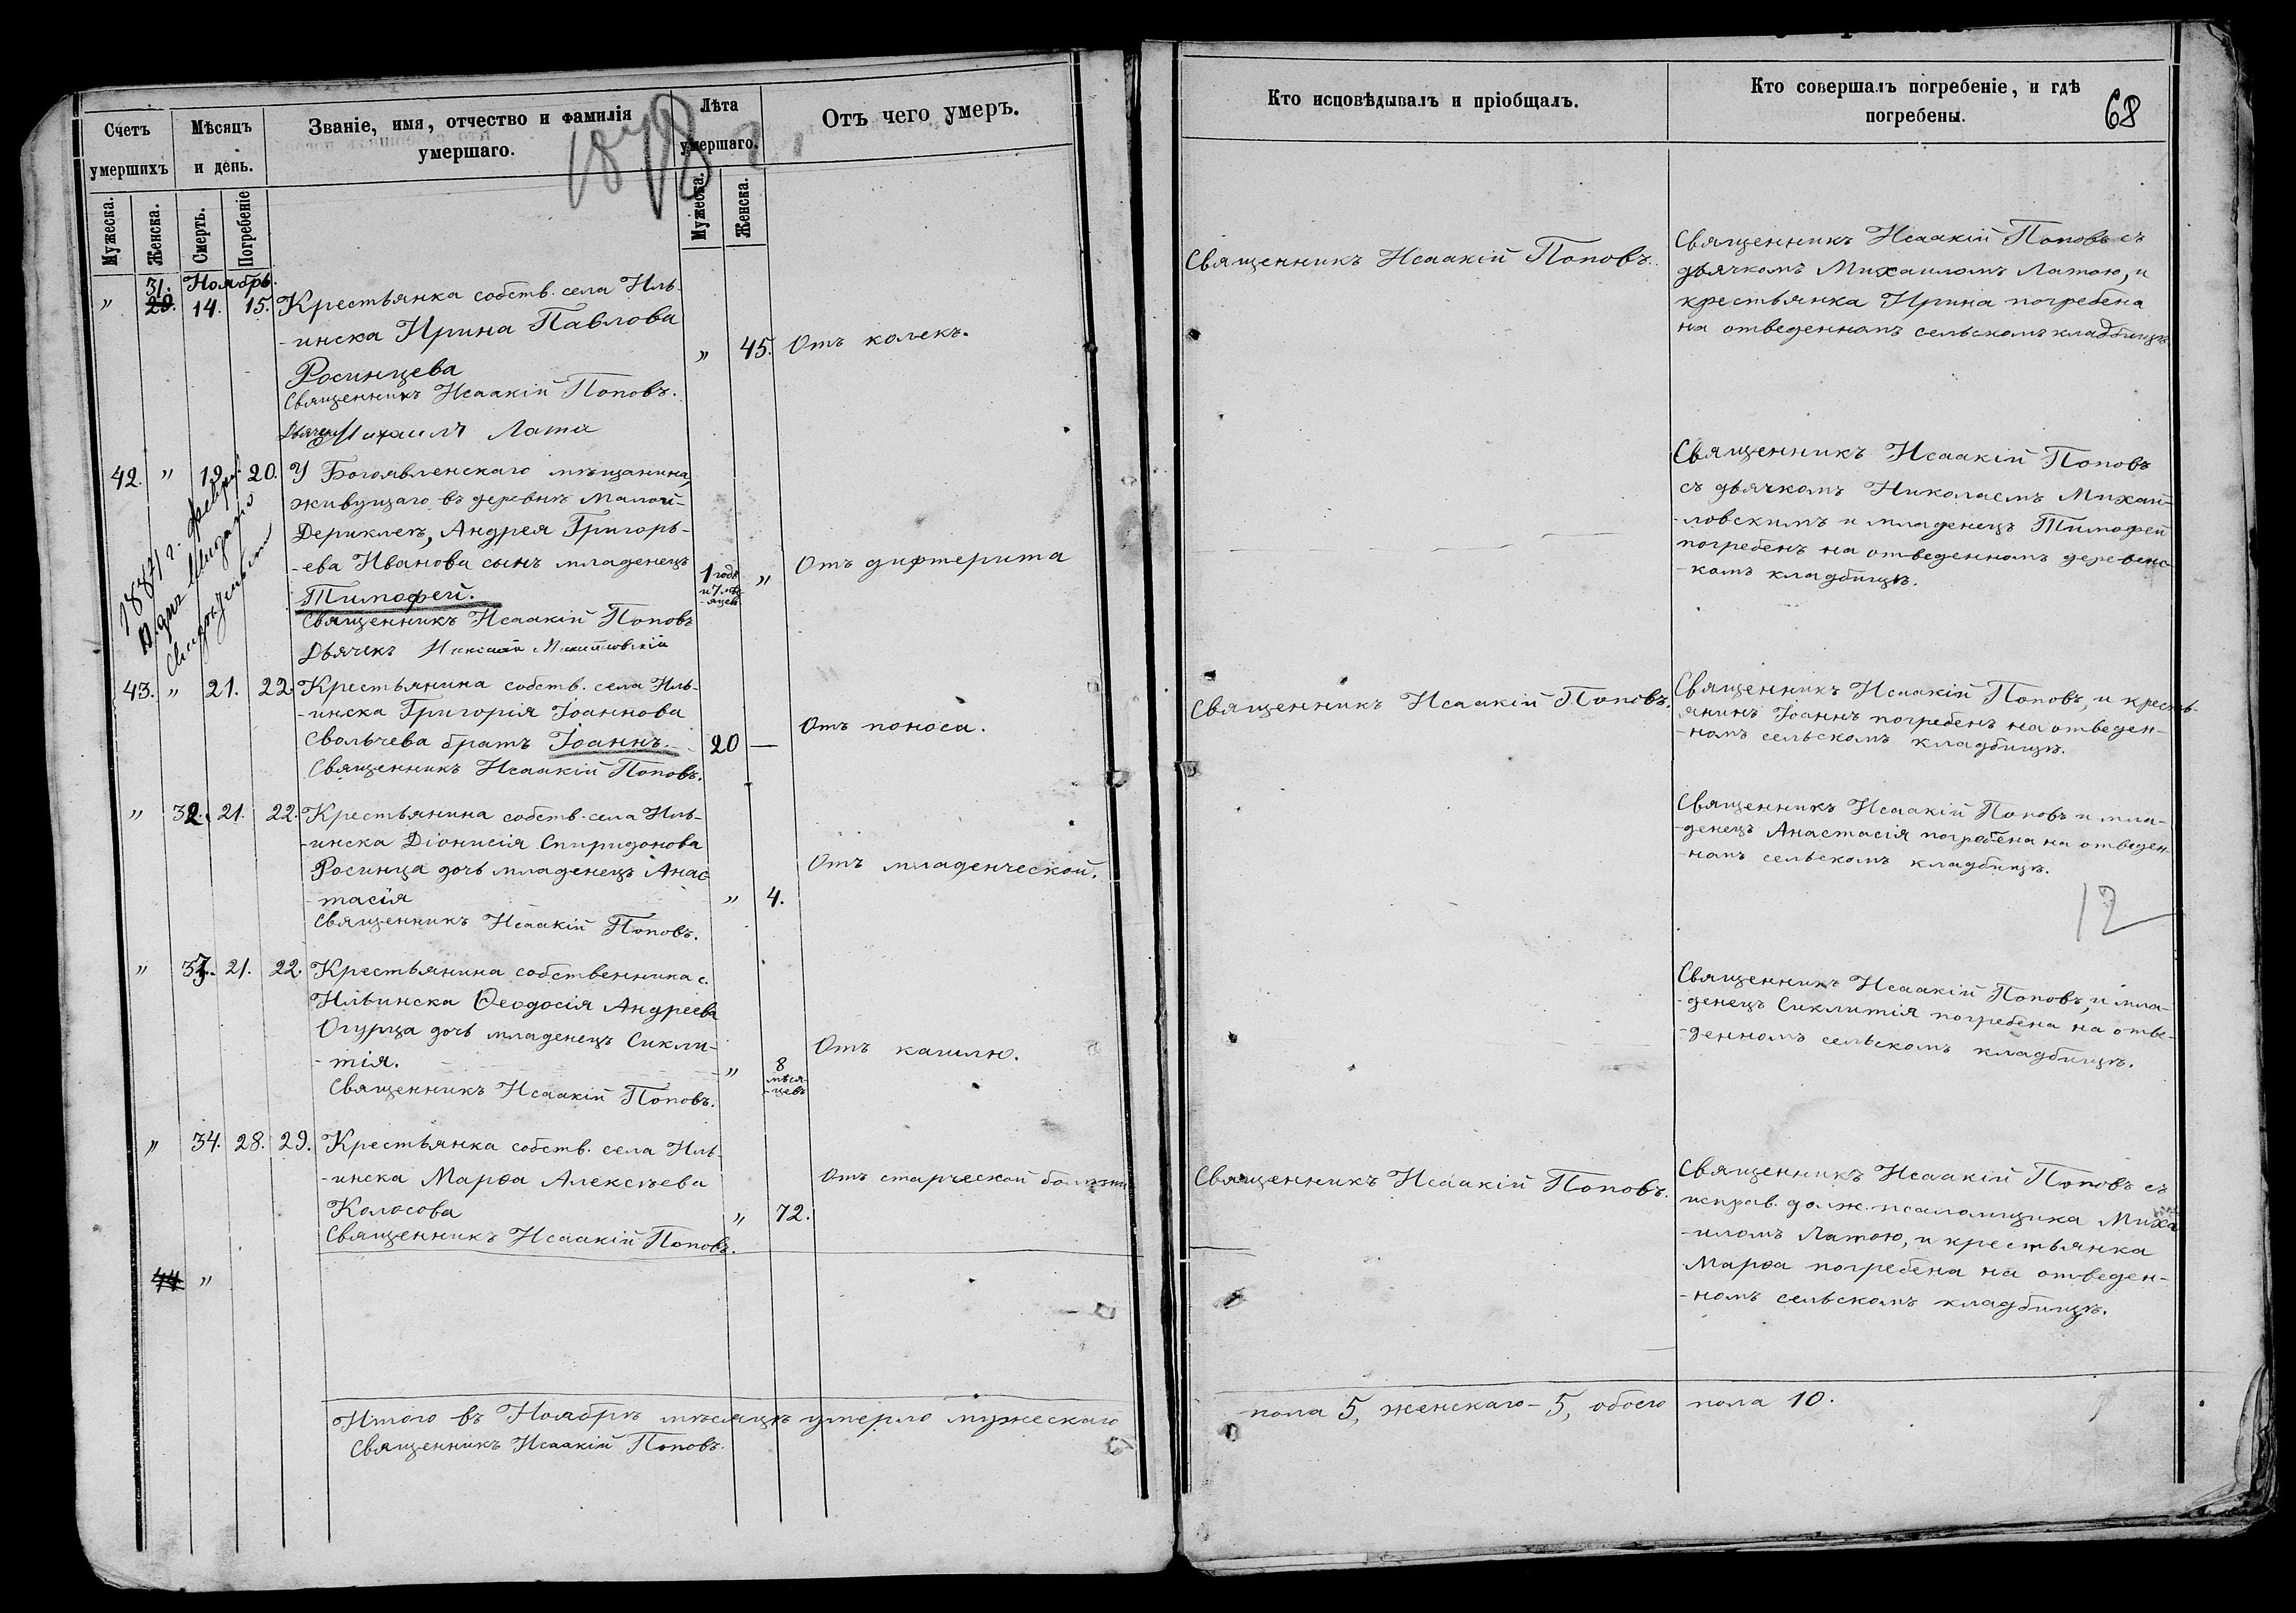 Счетъ
умершихъ
Мѣсяцъ
и день.
Званіе, имя, отчество и фамилія
умершаго.
1878
Лѣта
умершаго.
Отъ чего умеръ.
Мужеска.
Женска.
Смерть.
Погребеніе
Мужеска.
Женска.
Ноябрь.
" 31. 29. 14. 15. Крестьянка собств. села Иль-
-инска Ирина Павлова
Росинцева
" 45. Отъ колекъ.
Священникъ Исаакій Поповъ.
Дьячекъ Михаилъ Лата
42. " 19. 20. У Богоявленскаго мѣщанина,
живущаго въ деревнѣ Малой-
Дериклеѣ, Андрея Григорь-
-ева Иванова сынъ младенецъ
Тимофей.
1 годъ
и 7 мѣс-
-яцев
" Отъ дифтерита
Священникъ Исаакій Поповъ
Дьячекъ Николай Михайловскій
1887 г. февраля
дня выдано
свидѣтельст
43. " 21. 22. Крестьянина собств. села Иль-
-инска Григорія Іоаннова
Свольчева братъ Іоаннъ.
20 — Отъ поноса.
Священникъ Исаакій Поповъ.
" 32. 21. 22. Крестьянина собств. села Иль-
-инска Діонисія Спиридонова
Росинца дочь младенецъ Анас-
-тасія
" 4. Отъ младенческой.
Священникъ Исаакій Поповъ.
" 33. 21. 22. Крестьянина собственника с.
Ильинска Ѳеодосія Андреева
Огурца дочь младенецъ Сикли-
-тія.
" 8
мѣся-
-цевъ
Отъ кашлю.
Священникъ Исаакій Поповъ.
" 34. 28. 29. Крестьянка собств. села Иль-
-инска Марѳа Алексѣева
Колосова
" 72. Отъ старческой болѣзни
Священникъ Исаакій Поповъ.
44 "
Итого въ Ноябрѣ мѣсяцѣ умерло мужескаго
Священникъ Исаакій Поповъ.
Кто исповѣдывалъ и пріобщалъ.
Кто совершалъ погребеніе, и гдѣ
погребены.
68
Священникъ Исаакій Поповъ.
Священникъ Исаакій Поповъ съ
дьячкомъ Михаиломъ Латою, и
крестьянка Ирина погребена
на отведенномъ сельскомъ кладбищѣ.
Священникъ Исаакій Поповъ
съ дьячкомъ Николаемъ Михай-
-ловскимъ и младенецъ Тимофей
погребенъ на отведенномъ деревенс-
-комъ кладбищѣ.
Священникъ Исаакій Поповъ.
Священникъ Исаакій Поповъ, и кресть-
янинъ Іоаннъ погребенъ на отведен-
-номъ сельскомъ кладбищѣ.
Священникъ Исаакій Поповъ и мла-
-денецъ Анастасія погребена на отведен-
-номъ сельскомъ кладбищѣ.
12
Священникъ Исаакій Поповъ, и мла-
-денецъ Сиклитія погребена на отве-
-денномъ сельскомъ кладбищѣ.
Священникъ Исаакій Поповъ.
Священникъ Исаакій Поповъ съ
исправ. долж. псаломщика Миха
-иломъ Латою, и крестьянка
Марѳа погребена на отведен-
-номъ сельскомъ кладбищѣ.
пола 5, женскаго - 5, обоего пола 10.